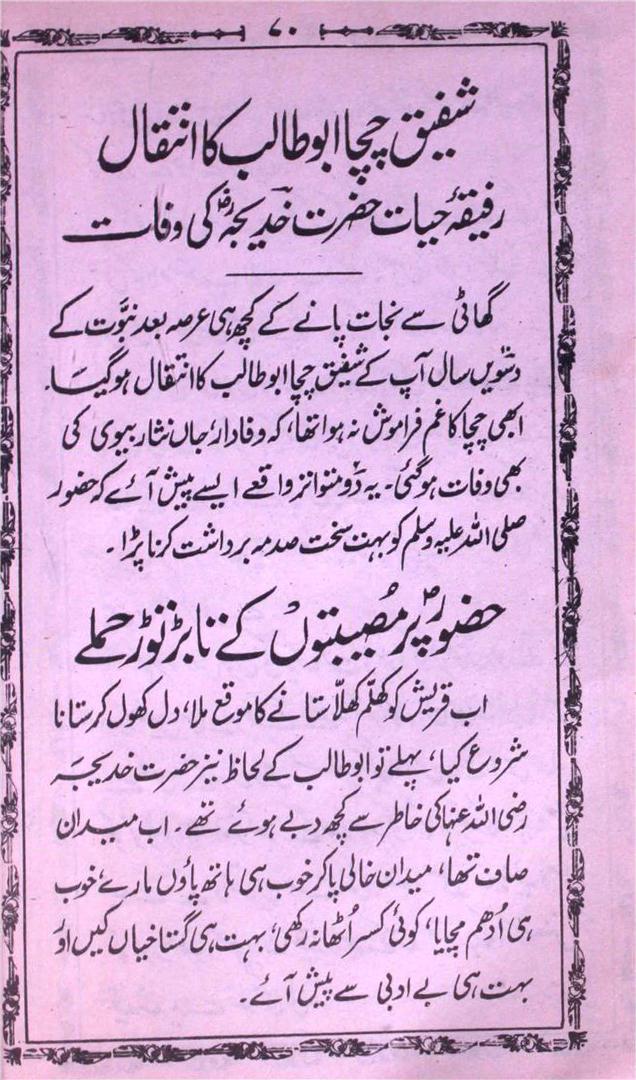 ۸۰
شفیق چچا ابو طالب کا انتقال
رفیقۂ حیات حضرت خدیجہؓ کی وفات
گھاٹی سے نجات پانے کے کچھ ہی عرصہ بعد نبوّت کے
دسویں سال آپ کے شفیق چچا ابو طالب کا انتقال ہوگیا۔
ابھی چچا کا غم فراموش نہ ہوا تھا، کہ وفادار، جاں نثار بیوی کی
بھی وفات ہوگئی۔ یہ دو متواتر واقعے ایسے پیش آئے کہ حضور
صلی اللہ علیہ وسلم کو بہت سخت صدمہ برداشت کرنا پڑا۔
حضورؐ پر مُصیبتوں کے تابڑ توڑ حملے
اب قریش کو کھلّم کھلّا ستانے کا موقع ملا، دل کھول کر ستانا
شروع کیا، پہلے تو ابو طالب کے لحاظ نیز حضرت خدیجہ
رضی اللہ عنہا کی خاطر سے کچھ دبے ہوئے تھے۔ اب میدان
صاف تھا، میدان خالی پاکر خوب ہی ہاتھ پاؤں مارے، خوب
ہی اُدھم مچایا، کوئی کسر اُٹھا نہ رکھی، بہت ہی گستاخیاں کیں اور
بہت ہی بے ادبی سے پیش آئے۔